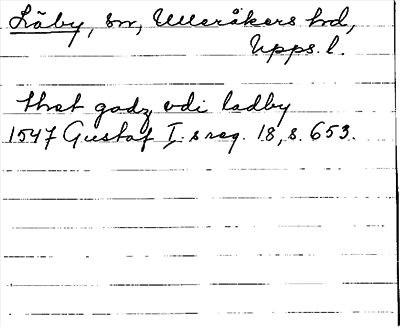 Läby, sn, Ulleråkers hd,
Upps. l.
thet godz vdi ladby
1547 Gustaf I:s reg. 18, s. 653.